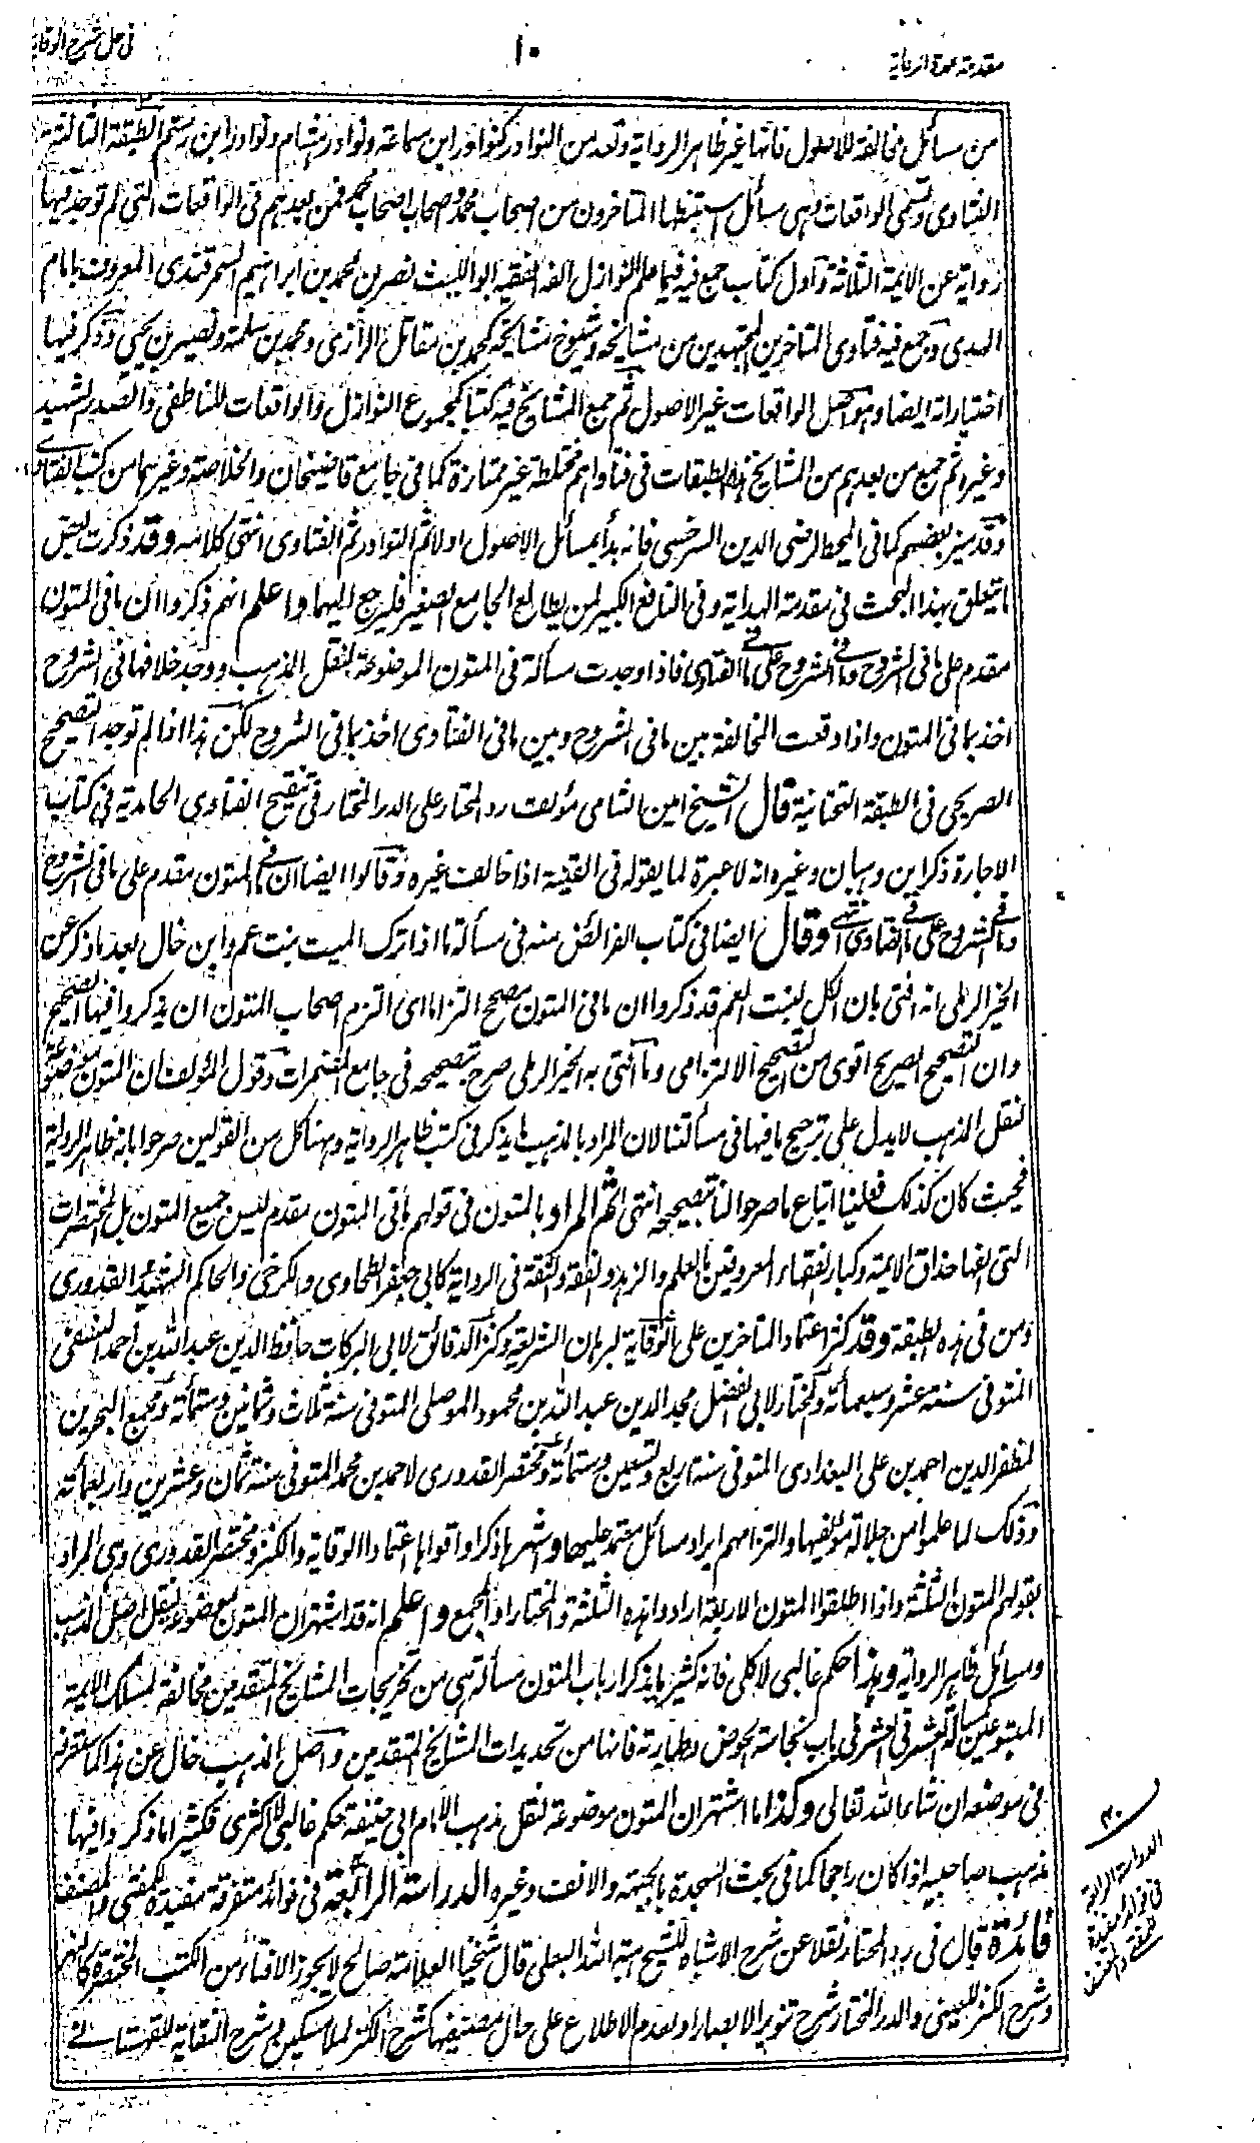 فی حل شرح الوقایة
۱۰
مقدمة عمدة الرعایة
من مسائل مخالفة للاصول فانها غیر ظاهر الروایة وتعد من النوادر کنوادر ابن سماعة ونوادر هشام ونوادر ابن رستم الطبقة الثالثة
الفتاوی وتسمی الواقعات وهی مسائل استنبطها المتاخرون من اصحاب محمد واصحاب اصحاب محمد فمن بعدهم فی الواقعات التی لم توجد فیها
روایة عن الایمة الثلاثة واول کتاب جمع فیه فیما علم النوازل الفه الفقیه ابو اللیث نصر بن محمد بن ابراهیم السمرقندی المعروف بامام
الهدی وجمع فیه فتاوی المتاخرین المجتهدین من مشایخه وشیوخ مشایخه کمحمد بن مقاتل الرازی ومحمد بن سلمة ونصیر بن یحیی وذکر فیها
اختیاراته ایضا وهو اصل الواقعات غیر الاصول ثم جمع المشایخ فیه کتبا کمجموع النوازل والواقعات للناطفی والصدر الشهید
وغیره ثم جمع من بعدهم من المشایخ هذه الطبقات فی فتاواهم مختلطة غیر ممتازة کما فی جامع قاضیخان والخلاصة وغیرهما من کتب الفتاوی
وقد میز بعضهم کما فی المحیط لرضی الدین السرخسی فانه بدأ بمسائل الاصول اولا ثم النوادر ثم الفتاوی انتهی کلامه وقد ذکرت بعض
ما یتعلق بهذا البحث فی مقدمة الهدایة وفی النافع الکبیر لمن یطالع الجامع الصغیر فلیرجع الیهما واعلم انهم ذکروا ان ما فی المتون
مقدم علی ما فی الشروح وما فی الشروح علی ما فی الفتاوی فاذا وجدت مسألة فی المتون الموضوعة لنقل المذهب ووجد خلافها فی الشروح
اخذ بما فی المتون واذا وقعت المخالفة بین ما فی الشروح وبین ما فی الفتاوی اخذ بما فی الشروح لکن هذا اذا لم توجد التصحیح
الصریحی فی الطبقة التحتانیة قال الشیخ امین الشامی مؤلف رد المحتار علی الدر المختار فی تنقیح الفتاوی الحامدیة فی کتاب
الاجارة ذکر ابن وهبان وغیره انه لا عبرة لما یقوله فی القنیة اذا خالف غیره وقالوا ایضا ان ما فی المتون مقدم علی ما فی الشروح
وما فی الشروح علی ما فی الفتاوی انتهی وقال ایضا فی کتاب الفرائض منه فی مسألة ما اذا ترک المیت بنت عم وابن خال بعد ما ذکر عن
الخیر الرملی انه افتی بان الکل لبنت العم قد ذکروا ان ما فی المتون مصحح التزاما ای التزم اصحاب المتون ان یذکروا فیها الصحیح
وان التصحیح الصریح اقوی من التصحیح الالتزامی وما افتی به الخیر الرملی صرح بتصحیحه فی جامع المضمرات وقول المؤلف ان المتون موضوعة
لنقل المذهب لا یدل علی ترجیح ما فیها فی مسألتنا لان المراد بالمذهب ما یذکر فی کتب ظاهر الروایة وهنا کل من القولین صرحوا بانه ظاهر الروایة
فحیث کان کذلک فعلینا اتباع ما صرحوا لنا بتصحیحه انتهی ثم المراد بالمتون فی قولهم ما فی المتون مقدم لیس جمیع المتون بل المختصرات
التی الفها حذاق الایمة وکبار الفقهاء المعروفین بالعلم والزهد والفقه والثقة فی الروایة کابی جعفر الطحاوی والکرخی والحاکم الشهید والقدوری
ومن فی هذه الطبقة وقد کثر اعتماد المتاخرین علی الوقایة لبرهان الشریعة وکنز الدقائق لابی البرکات حافظ الدین عبد الله بن احمد النسفی
المتوفی سنة عشر وسبعمائة والمختار لابی الفضل مجد الدین عبد الله بن محمود الموصلی المتوفی سنة ثلاث وثمانین وستمائة ومجمع البحرین
لمظفر الدین احمد بن علی البغدادی المتوفی سنة اربع وتسعین وستمائة ومختصر القدوری لاحمد بن محمد المتوفی سنة ثمان وعشرین واربعمائة
وذلک لما علموا من جلالة مؤلفیها والتزامهم ایراد مسائل معتمد علیها واشهرها ذکرا واقواها اعتمادا الوقایة والکنز ومختصر القدوری وهی المراد
بقولهم المتون الثلثة واذا اطلقوا المتون الاربعة ارادوا هذه الثلثة والمختار او المجمع واعلم انه قد اشتهر ان المتون موضوعة لنقل اصل المذهب
ومسائل ظاهر الروایة وهذا حکم غالبی لا کلی فانه کثیرا ما یذکر ارباب المتون مسألة هی من تخریجات المشایخ المتقدمین مخالفة لمسلک الایمة
المتبوعین کمسألة العشر فی العشر فی باب نجاسة الحوض وطهارته فانها من تحدیدات المشایخ المتقدمین واصل المذهب خال عن هذا کما ستعرفه
فی موضعه ان شاء الله تعالی وکذا ما اشتهر ان المتون موضوعة لنقل مذهب الامام ابی حنیفة حکم غالبی لا اکثری فکثیرا ما ذکروا فیها
مذهب صاحبیه اذا کان راجحا کما فی بحث السجدة بالجبهة والانف وغیره الدراسة الرابعة فی فوائد متفرقة مفیدة للمفتی والمصنف
فائدة قال فی رد المحتار نقلا عن شرح الاشباه للشیخ هبة الله البعلی قال شیخنا العلامة صالح لا یجوز الافتاء من الکتب المختصرة کالنهر
وشرح الکنز للعینی والدر المختار شرح تنویر الابصار او لعدم الاطلاع علی حال مصنفیها کشرح الکنز لملا مسکین وشرح النقایة للقهستانی
الدراسة الرابعة
فی فوائد مفیدة
للمفتی والمصنف